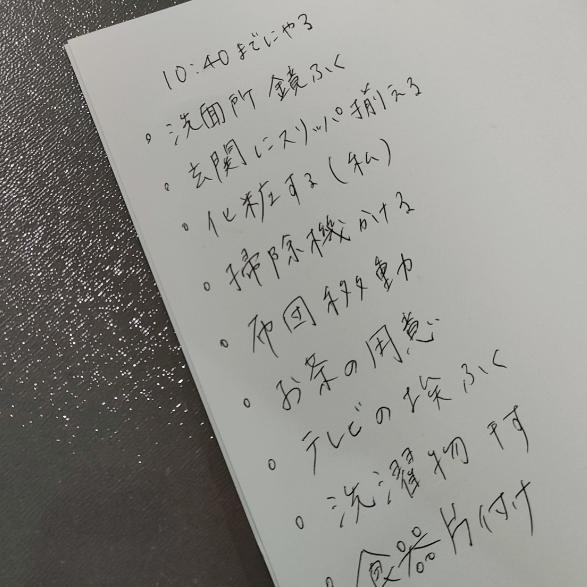 10:40までにやる
◦ 洗面所 鏡ふく
◦ 玄関にスリッパ揃える
◦ 化粧する(私)
◦ 掃除機かける
◦ 布団移動
◦ お茶の用意
◦ テレビの埃ふく
◦ 洗濯物干す
◦ 食器片付け